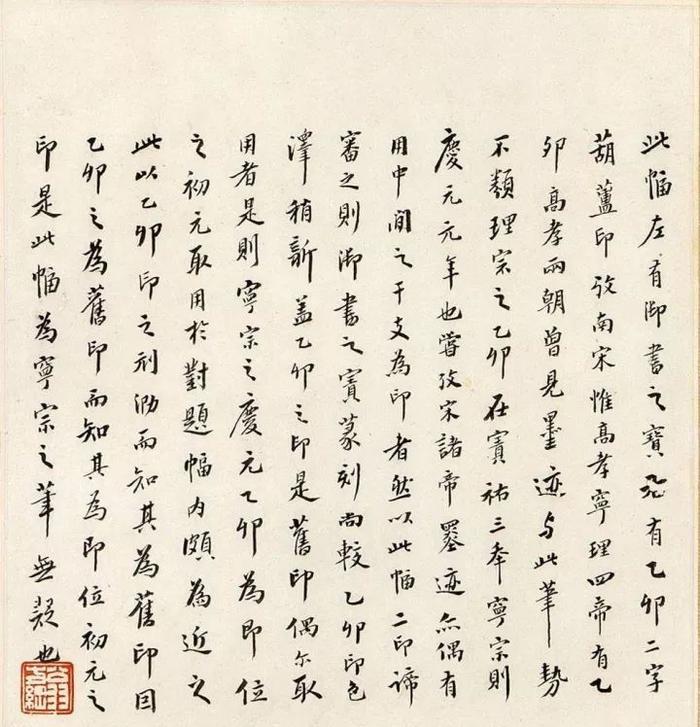 此幅左有御書之寶及有乙卯二字
葫蘆印攷南宋惟髙孝寧理四帝有乙
卯髙孝兩朝曾見墨迹与此筆勢
不類理宗之乙卯在寶祐三年寧宗則
慶元元年也嘗攷宋諸帝墨迹亦偶有
用中間之干支為印者然以此幅二印諦
審之則御書之寶篆刻尚較乙卯印色
澤稍新蓋乙卯之印是舊印偶尓取
用者是則寧宗之慶元乙卯為即位
之初元取用於對題幅內頗為近之
此以乙卯印之刓泐而知其為舊印因
乙卯之為舊印而知其為即位初元之
印是此幅為寧宗之筆無疑也